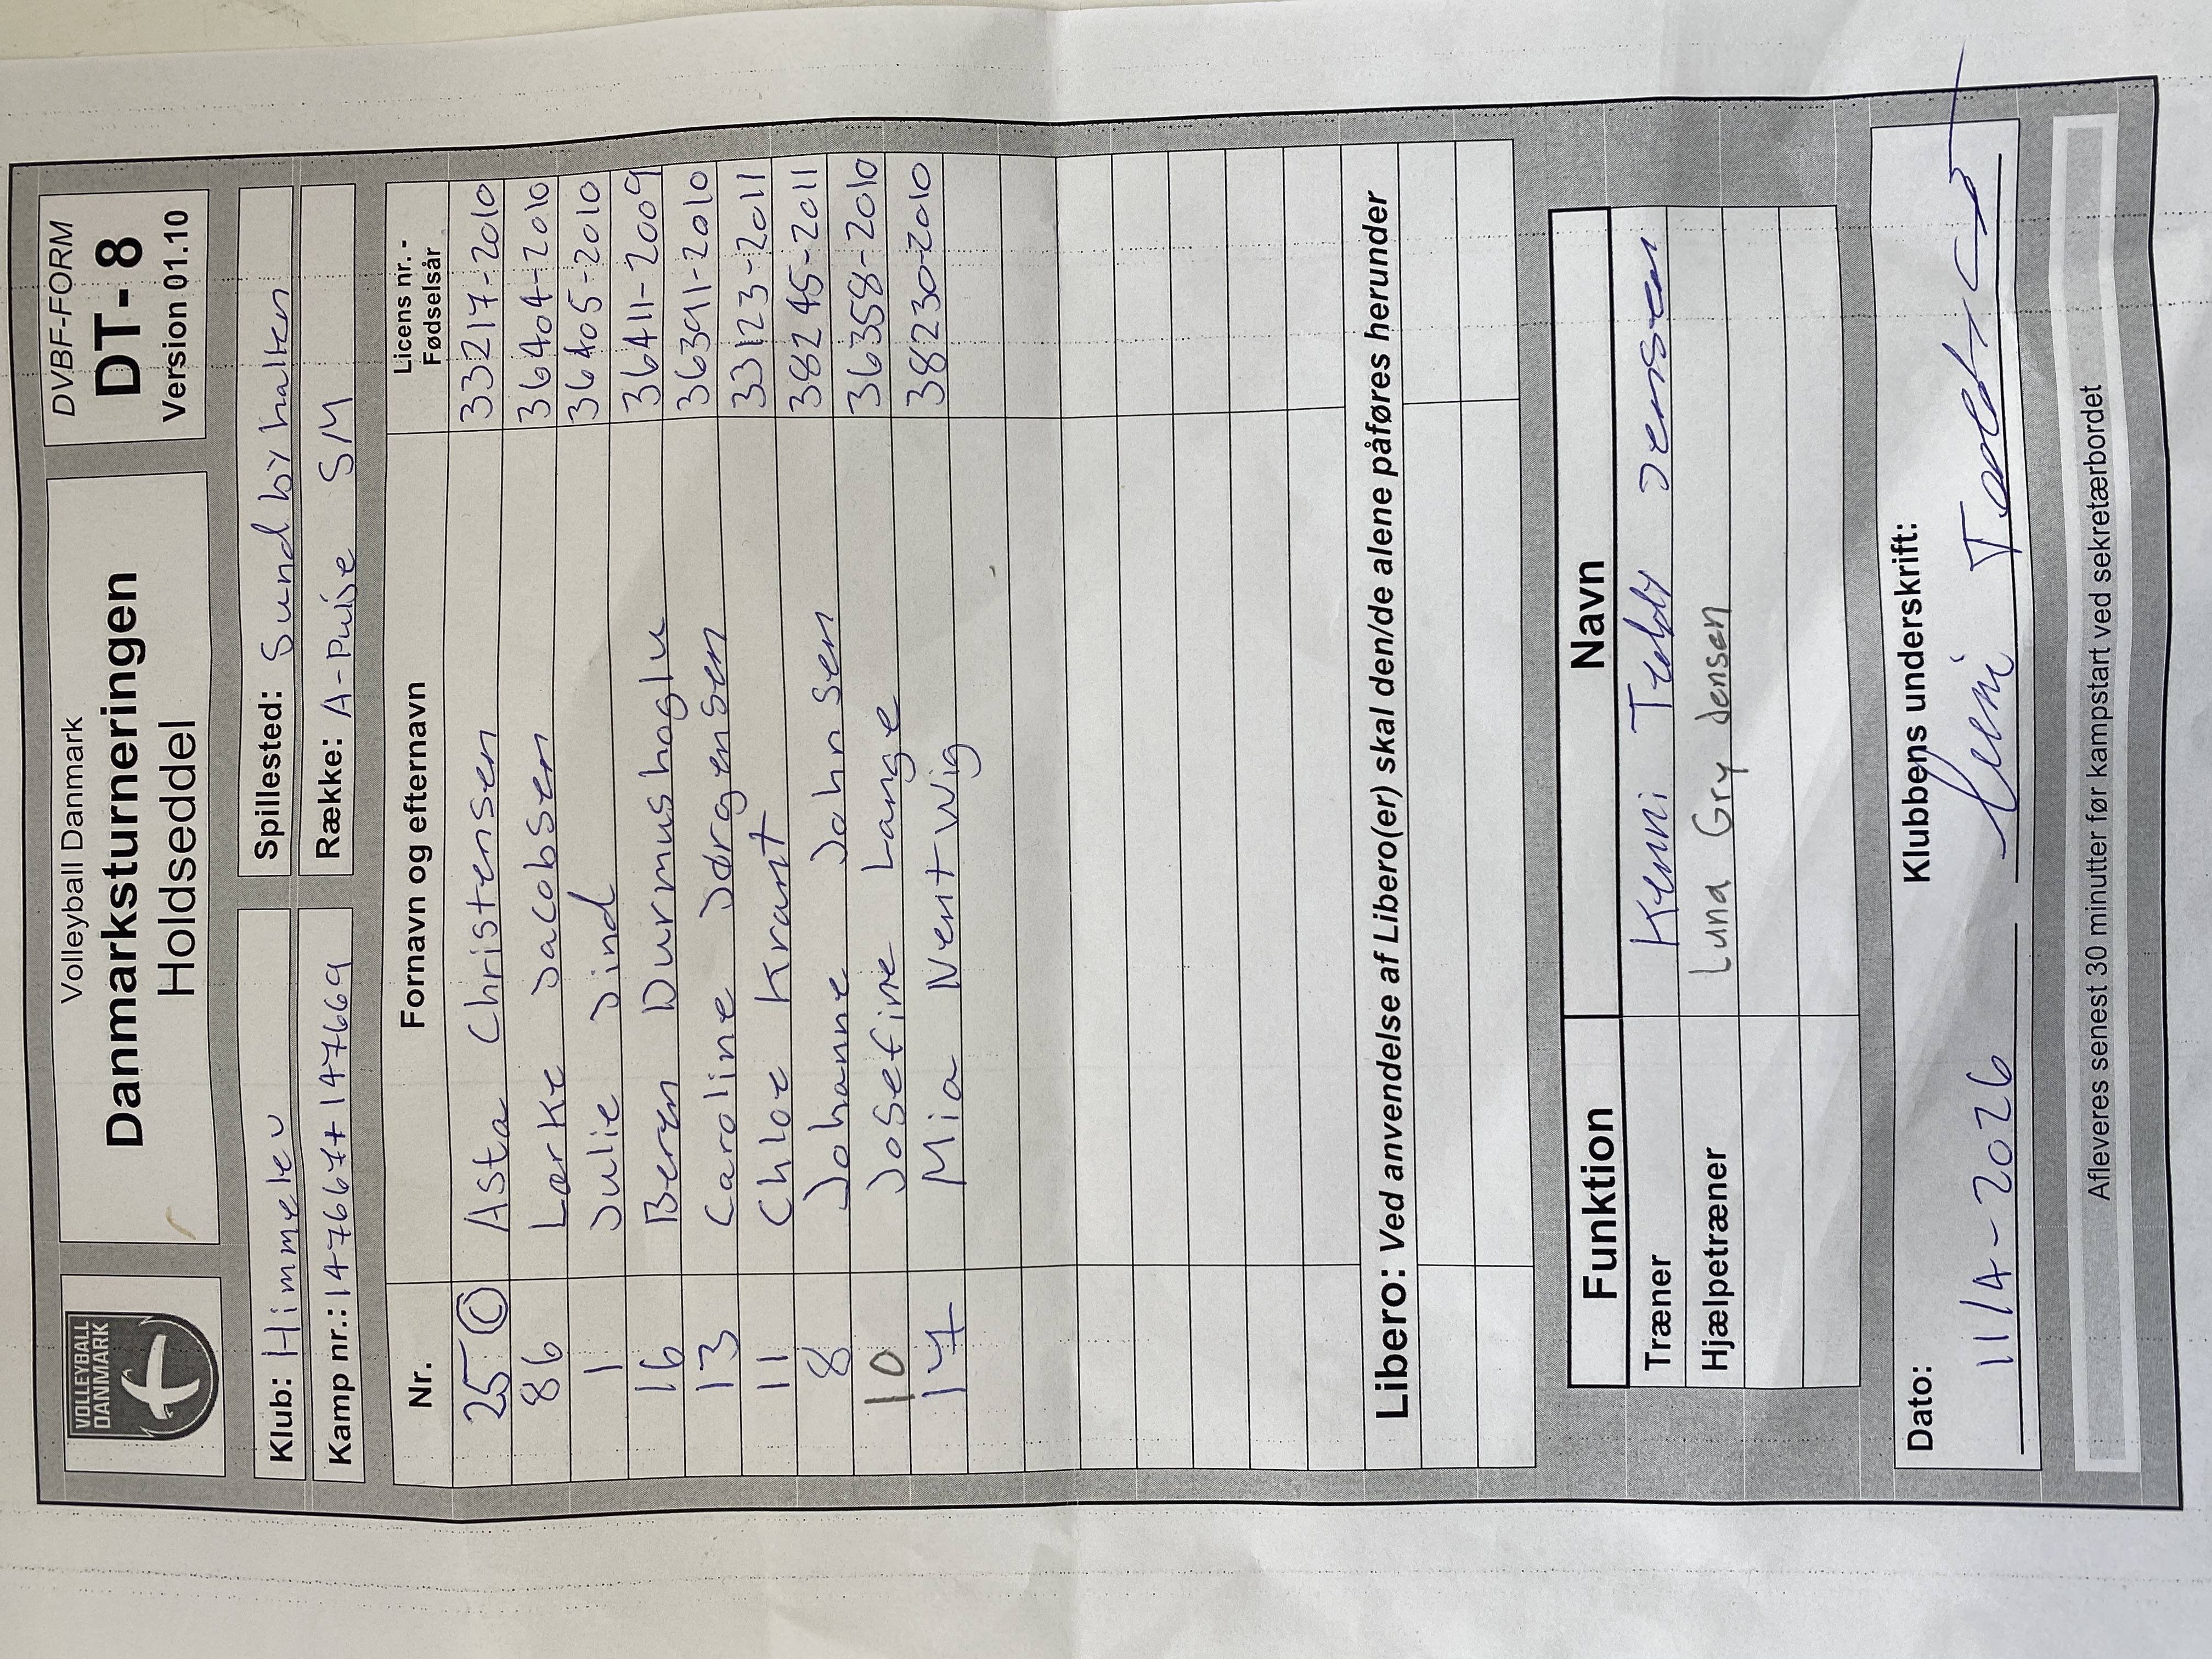 VOLLEYBALL
DANMARK
Volleyball Danmark
Danmarksturneringen
Holdseddel
DVBF-FORM
DT- 8
Version 01.10
Klub: Himmelev
Spillested: Sundbyhallen
Kamp nr.: 147667+147669
Række: A-Pulje SM
Nr. Fornavn og efternavn Licens nr. - Fødselsår
25 © Asta Christensen 33217-2010
86 Lærke Jacobsen 36404-2010
1 Julie Jind 36405-2010
16 Beren Durmushoglu 36411-2009
13 Caroline Jørgensen 36391-2010
11 Chloe Krant 33123-2011
8 Johanne Johnsen 38245-2011
10 Josefine Lange 36358-2010
17 Mia Nentwig 38230-2010
Libero: Ved anvendelse af Libero(er) skal den/de alene påføres herunder
Funktion Navn
Træner Kenni Toldy Jensen
Hjælpetræner Luna Gry Jensen
Dato: Klubbens underskrift:
11/4-2026
Afleveres senest 30 minutter før kampstart ved sekretærbordet